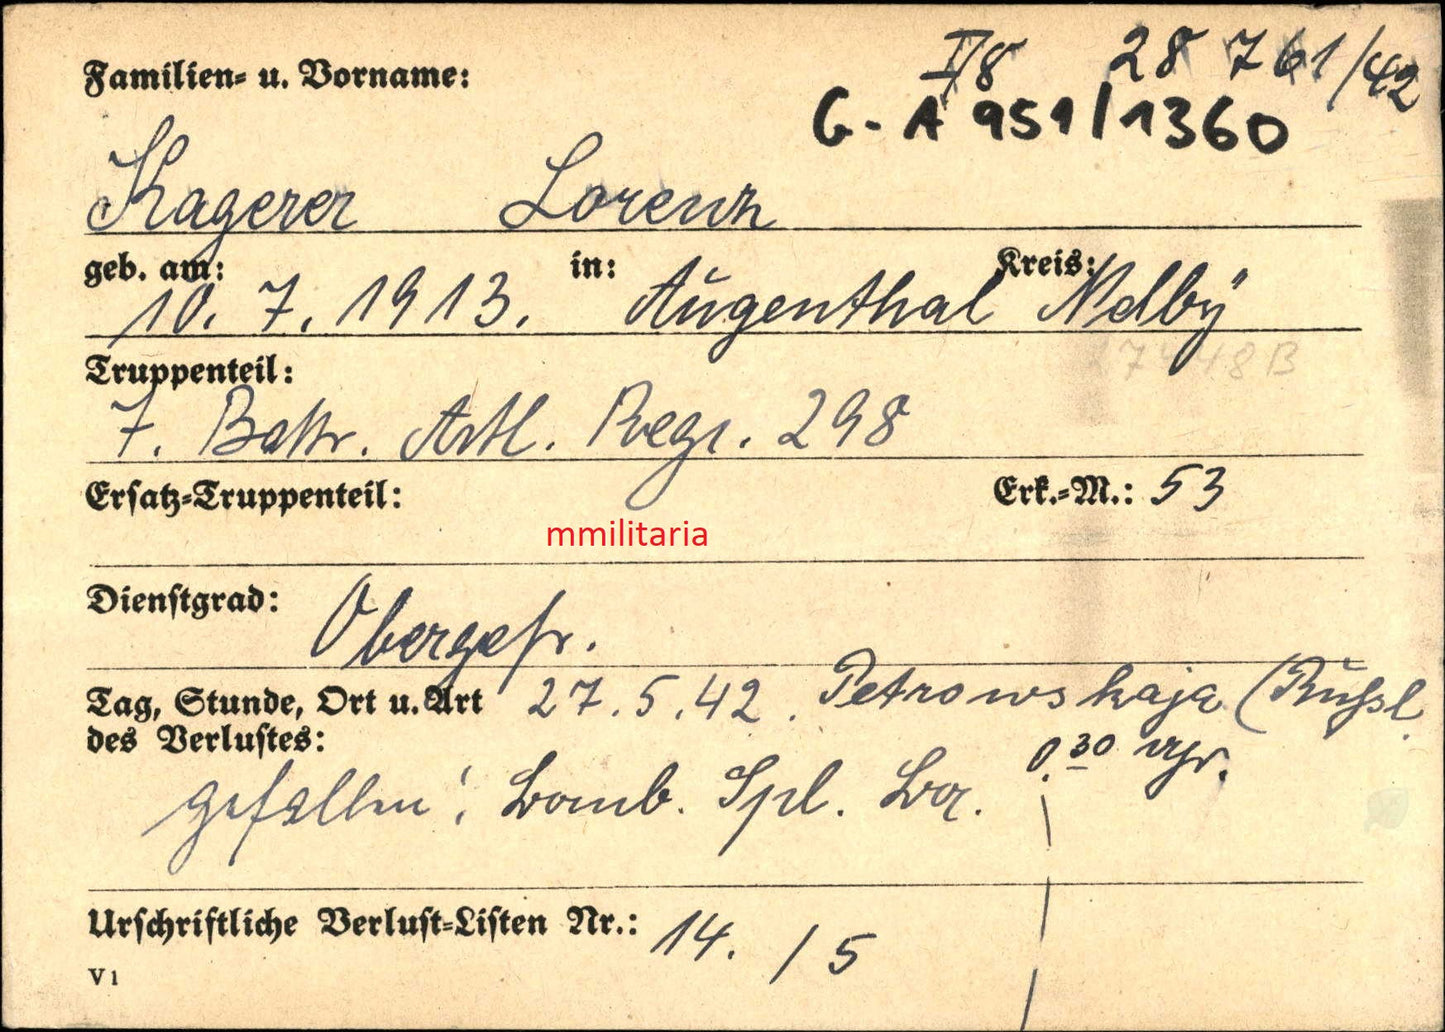 II/8 28 761/42
G-A 951/1360
Familien- u. Vorname:
Kagerer Lorenz
geb. am: in: Kreis:
10. 7. 1913. Augenthal
Truppenteil:
7. Battr. Artl. Regr. 298
Ersatz-Truppenteil:
Erk.-M.: 53
mmilitaria
Dienstgrad:
Obergefr.
Tag, Stunde, Ort u. Art 27.5.42. Petrowskaja (Rußl.
des Verlustes: 0.30 Uhr.
gefallen: Bomb. Spl.
Urschriftliche Verlust-Listen Nr.: 14. / 5
V 1